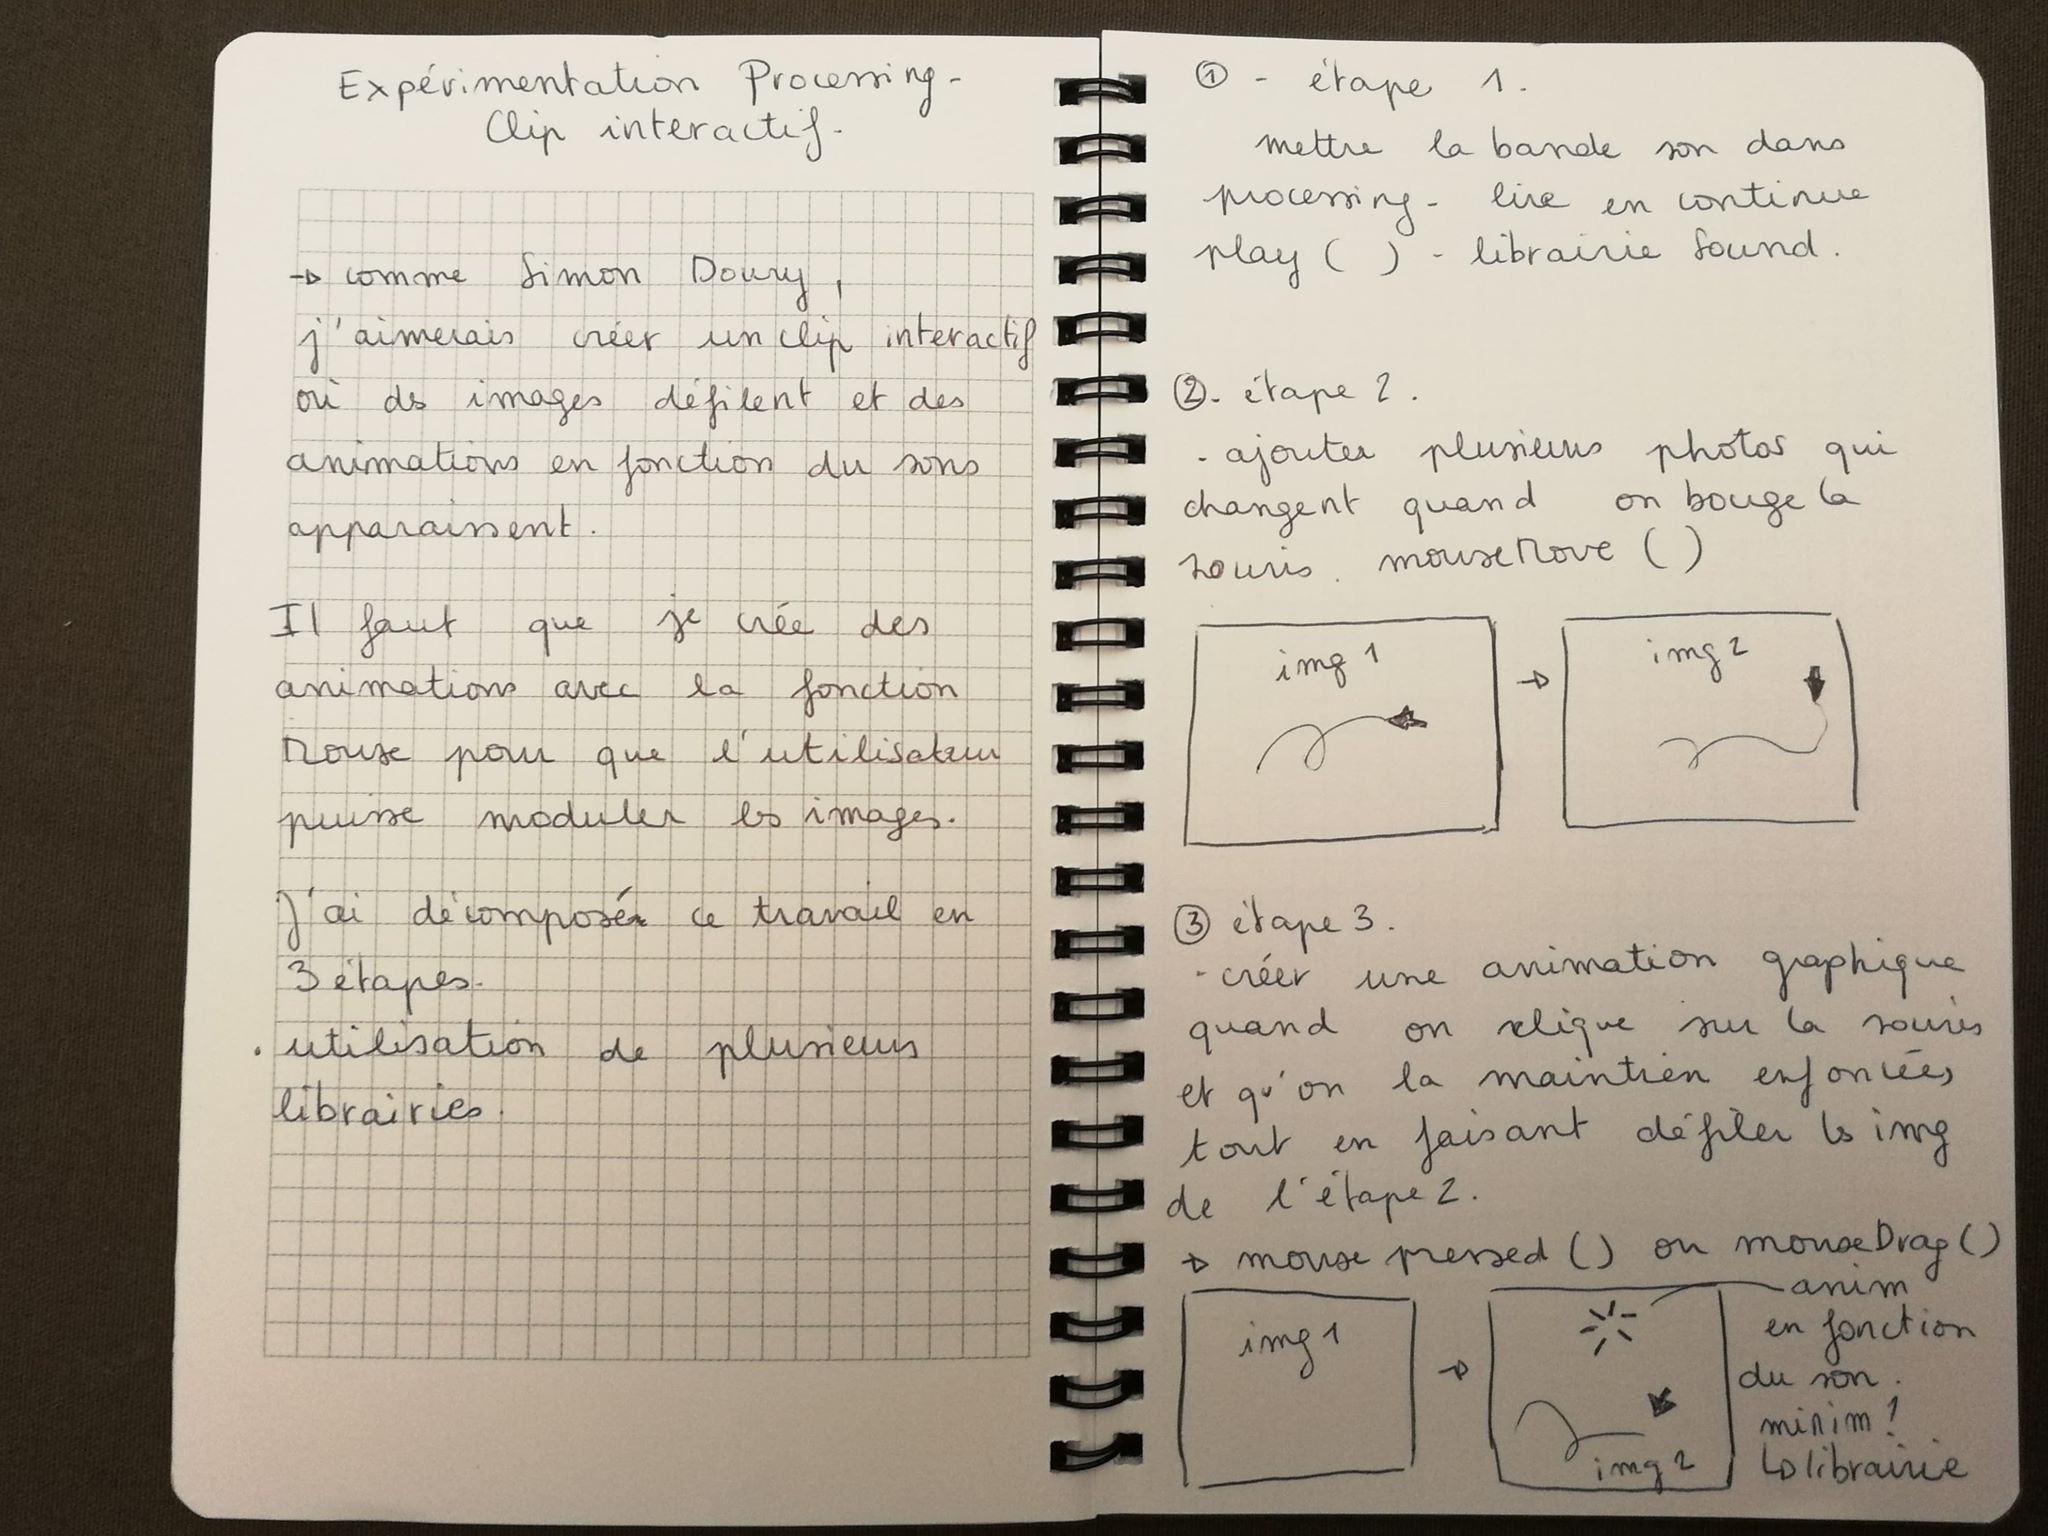 Expérimentation Processing -
Clip interactif -
→ comme Simon Doury,
j'aimerais créer un clip interactif
où des images défilent et des
animations en fonction du sons
apparaissent.
Il faut que je crée des
animations avec la fonction
Mouse pour que l'utilisateur
puisse moduler les images.
J'ai décomposér ce travail en
3 étapes.
. utilisation de plusieurs
librairies.
① - étape 1.
mettre la bande son dans
processing - lire en continue
play ( ) - librairie Sound.
②. étape 2.
- ajouter plusieurs photos qui
changent quand on bouge la
souris. mouseMove ( )
img 1 → img 2
③ étape 3.
- créer une animation graphique
quand on clique sur la souris
et qu'on la maintien enfoncées
tout en faisant défiler les img
de l'étape 2.
→ mouse pressed ( ) ou mouseDrag ( )
img 1 → img 2
anim
en fonction
du son.
minim !
↳ librairie